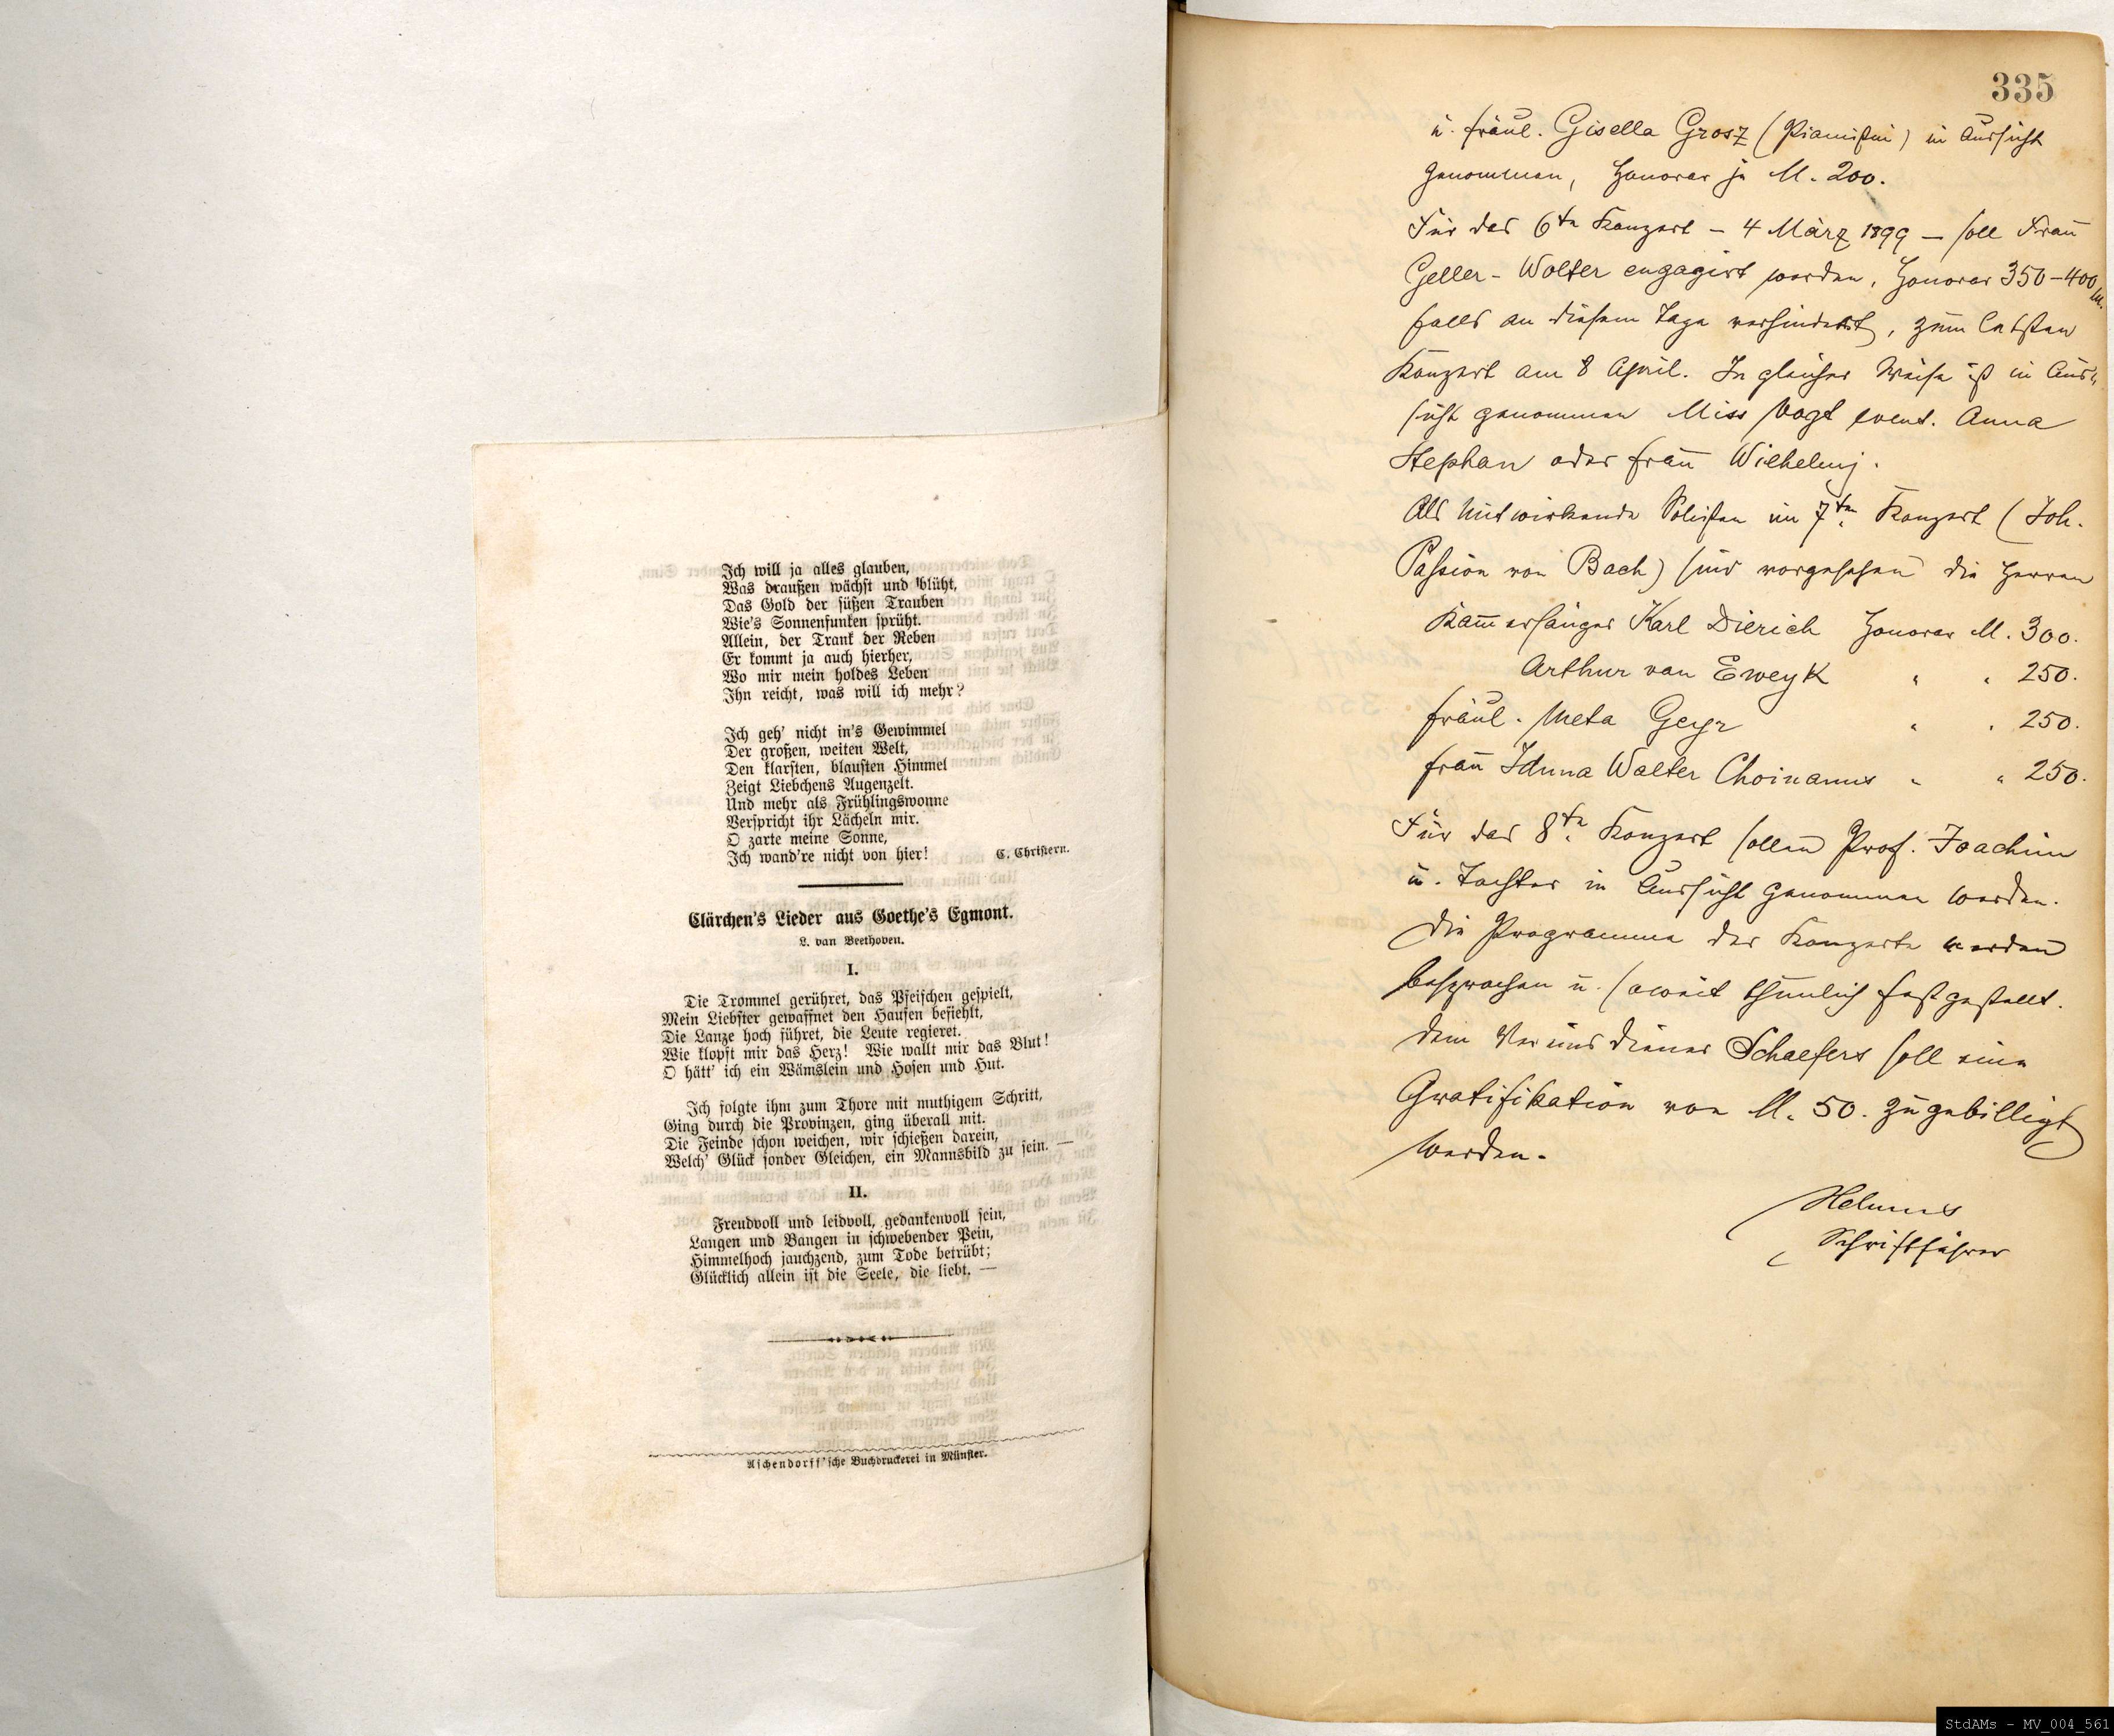 Ich will ja alles glauben,
Was draußen wächst und blüht,
Das Gold der süßen Trauben
Wie's Sonnenfunken sprüht.
Allein, der Trank der Reben
Er kommt ja auch hierher,
Wo mir mein holdes Leben
Ihn reicht, was will ich mehr?
Ich geh' nicht in's Gewimmel
Der großen, weiten Welt,
Den klarsten, blausten Himmel
Zeigt Liebchens Augenzelt.
Und mehr als Frühlingswonne
Verspricht ihr Lächeln mir.
O zarte meine Sonne,
Ich wand're nicht von hier! C. Christern.
Clärchen's Lieder aus Goethe's Egmont.
L. van Beethoven.
I.
Die Trommel gerühret, das Pfeifchen gespielt,
Mein Liebster gewaffnet den Haufen befiehlt,
Die Lanze hoch führet, die Leute regieret.
Wie klopft mir das Herz! Wie wallt mir das Blut!
O hätt' ich ein Wämslein und Hosen und Hut.
Ich folgte ihm zum Thore mit muthigem Schritt,
Ging durch die Provinzen, ging überall mit.
Die Feinde schon weichen, wir schießen darein,
Welch' Glück sonder Gleichen, ein Mannsbild zu sein. —
II.
Freudvoll und leidvoll, gedankenvoll sein,
Langen und Bangen in schwebender Pein,
Himmelhoch jauchzend, zum Tode betrübt;
Glücklich allein ist die Seele, die liebt. —
Aschendorff'sche Buchdruckerei in Münster.
335
u. Fräul. Gisella Grosz (Pianistin) in Aussicht
genommen, Honorar je M. 200.
Für das 6te Konzert – 4 März 1899 – soll Frau
Geller-Wolter engagirt werden, Honorar 350–400 M.
falls an diesem Tage verhindert, zum letzten
Konzert am 8 April. In gleicher Weise ist in Aus-
sicht genommen Miss Vogt event. Anna
Stephan oder Frau Wilhelmj.
Als mitwirkende Solisten im 7ten Konzert (Joh.
Passion von Bach) sind vorgesehen die Herren
Kammersänger Karl Dierich Honorar M. 300.
Arthur van Eweyk " " 250.
Fräul. Meta Geyr " " 250.
Frau Iduna Walter Choinanus " " 250.
Für das 8te Konzert sollen Prof. Joachim
u. Tochter in Aussicht genommen werden.
Die Programme der Konzerte werden
besprochen u. soweit thunlich festgestellt.
Dem Vereinsdiener Schaefers soll eine
Gratifikation von M. 50. zugebilligt
werden.
Helmus
Schriftführer
StdAMs - MV_004_561